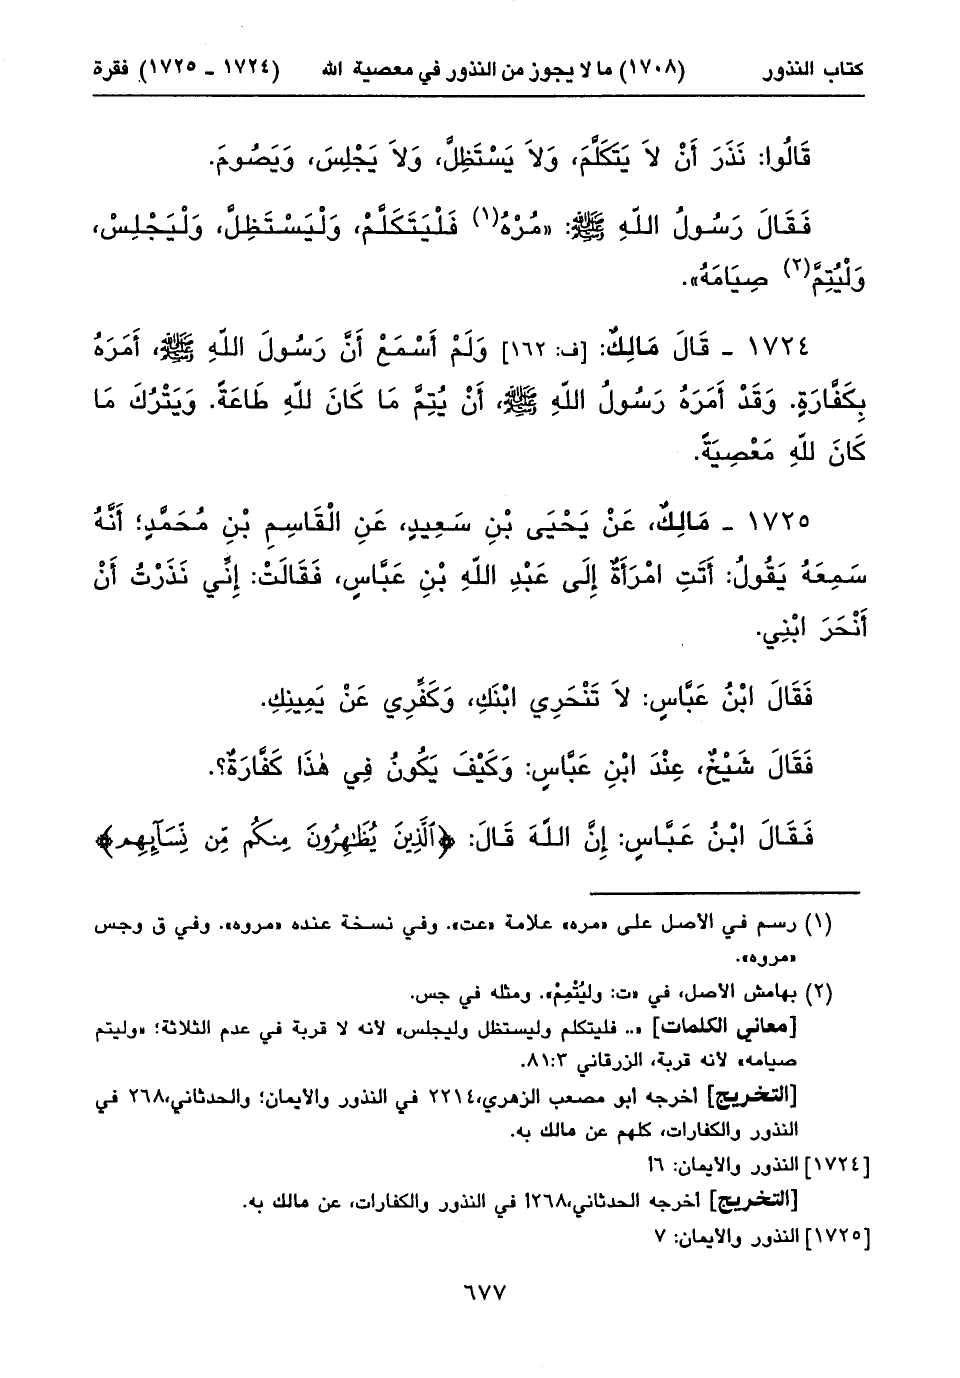 كتاب النذور (١٧٠٨) ما لا يجوز من النذور في معصية الله (١٧٢٤ ـ ١٧٢٥) فقرة
قَالُوا: نَذَرَ أَنْ لاَ يَتَكَلَّمَ، وَلاَ يَسْتَظِلَّ، وَلاَ يَجْلِسَ، وَيَصُومَ.
فَقَالَ رَسُولُ اللّهِ ﷺ: «مُرْهُ(١) فَلْيَتَكَلَّمْ، وَلْيَسْتَظِلَّ، وَلْيَجْلِسْ،
وَلْيُتِمَّ(٢) صِيَامَهُ».
١٧٢٤ ـ قَالَ مَالِكٌ: [ف: ١٦٢] وَلَمْ أَسْمَعْ أَنَّ رَسُولَ اللّهِ ﷺ، أَمَرَهُ
بِكَفَّارَةٍ. وَقَدْ أَمَرَهُ رَسُولُ اللّهِ ﷺ، أَنْ يُتِمَّ مَا كَانَ للّهِ طَاعَةً. وَيَتْرُكَ مَا
كَانَ للّهِ مَعْصِيَةً.
١٧٢٥ ـ مَالِكٌ، عَنْ يَحْيَى بْنِ سَعِيدٍ، عَنِ الْقَاسِمِ بْنِ مُحَمَّدٍ؛ أَنَّهُ
سَمِعَهُ يَقُولُ: أَتَتِ امْرَأَةٌ إِلَى عَبْدِ اللّهِ بْنِ عَبَّاسٍ، فَقَالَتْ: إِنِّي نَذَرْتُ أَنْ
أَنْحَرَ ابْنِي.
فَقَالَ ابْنُ عَبَّاسٍ: لاَ تَنْحَرِي ابْنَكِ، وَكَفِّرِي عَنْ يَمِينِكِ.
فَقَالَ شَيْخٌ، عِنْدَ ابْنِ عَبَّاسٍ: وَكَيْفَ يَكُونُ فِي هٰذَا كَفَّارَةٌ؟.
فَقَالَ ابْنُ عَبَّاسٍ: إِنَّ اللّهَ قَالَ: ﴿ٱلَّذِينَ يُظَٰهِرُونَ مِنكُم مِّن نِّسَآئِهِم﴾
(١) رسم في الأصل على «مره» علامة «عت». وفي نسخة عنده «مروه». وفي ق وجس
«مروه».
(٢) بهامش الأصل، في «ت: وليُتْمِمْ». ومثله في جس.
[معاني الكلمات] «.. فليتكلم وليستظل وليجلس» لأنه لا قربة في عدم الثلاثة؛ «وليتم
صيامه» لأنه قربة، الزرقاني ٣:‏٨١.
[التخريج] أخرجه أبو مصعب الزهري،٢٢١٤ في النذور والأيمان؛ والحدثاني،٢٦٨ في
النذور والكفارات، كلهم عن مالك به.
[١٧٢٤] النذور والأيمان: ٦أ
[التخريج] أخرجه الحدثاني،٢٦٨أ في النذور والكفارات، عن مالك به.
[١٧٢٥] النذور والأيمان: ٧
٦٧٧